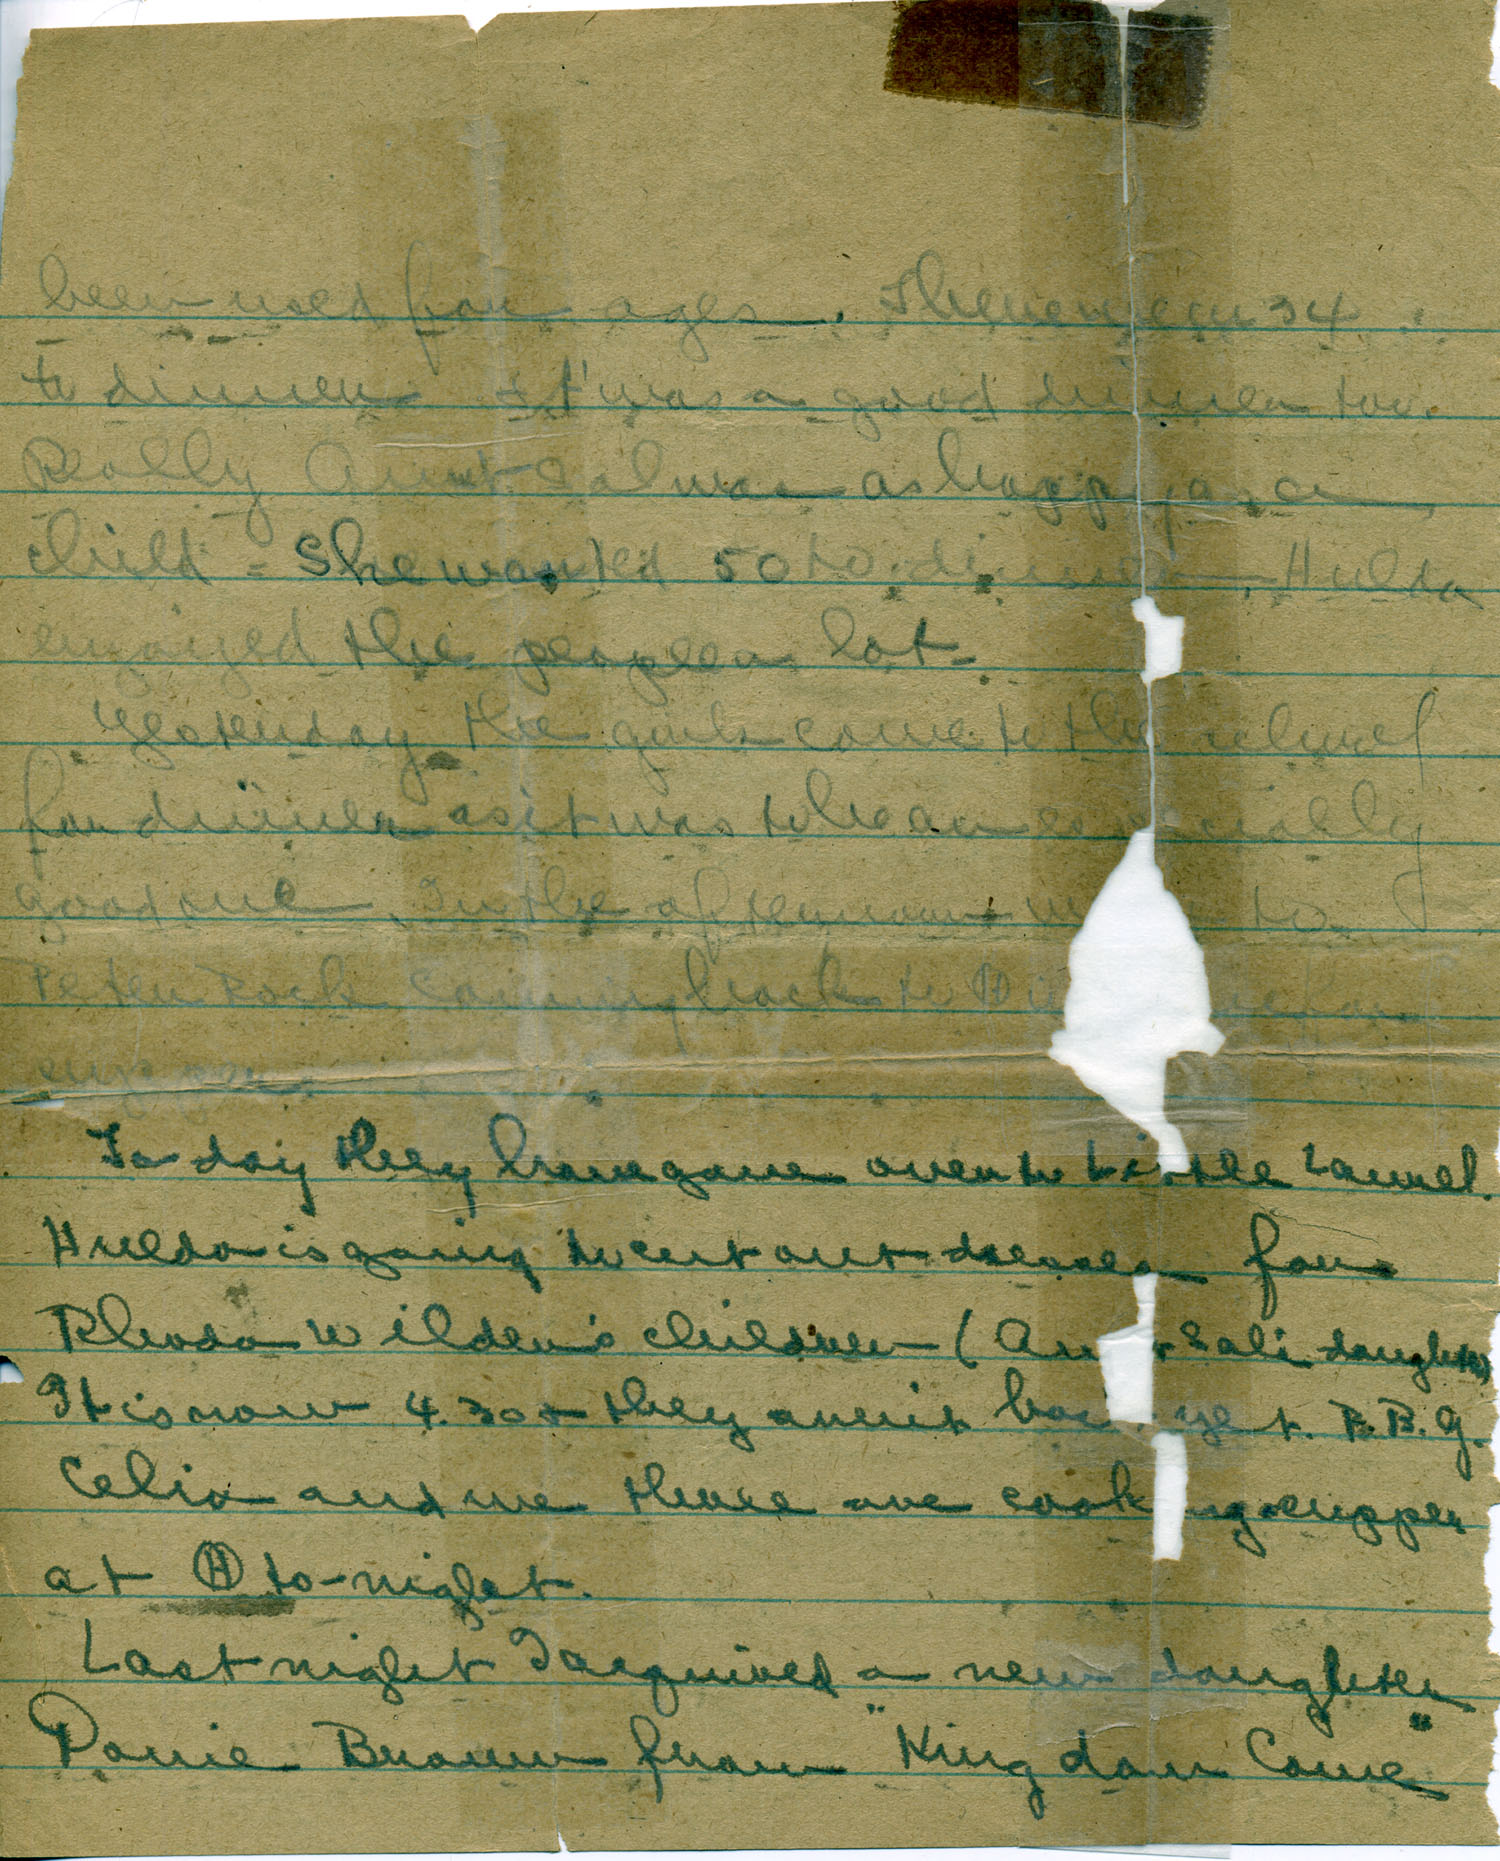 been used for ages. There were 34
to dinner It was a good dinner too.
Really Aunt Sal was as happy as a
child - She wanted 50 to dinner. Hulda
enjoyed the people a lot.
Yesterday the girls came to the school
for dinner as it was to be an especially
good one. In the afternoon to
Peter Rock coming back to for
supper.
To-day they have gone over to Little Laurel.
Hulda is going to cut out dresses for
Rhoda Wilder's children (Aunt Sal's daughter)
It is now 4.30 & they aren't back yet. R.B.G.
Celia and we three are cooking supper
at Ⓗ to-night.
Last night I acquired a new daughter
Dovie Brown from "Kingdom Come"